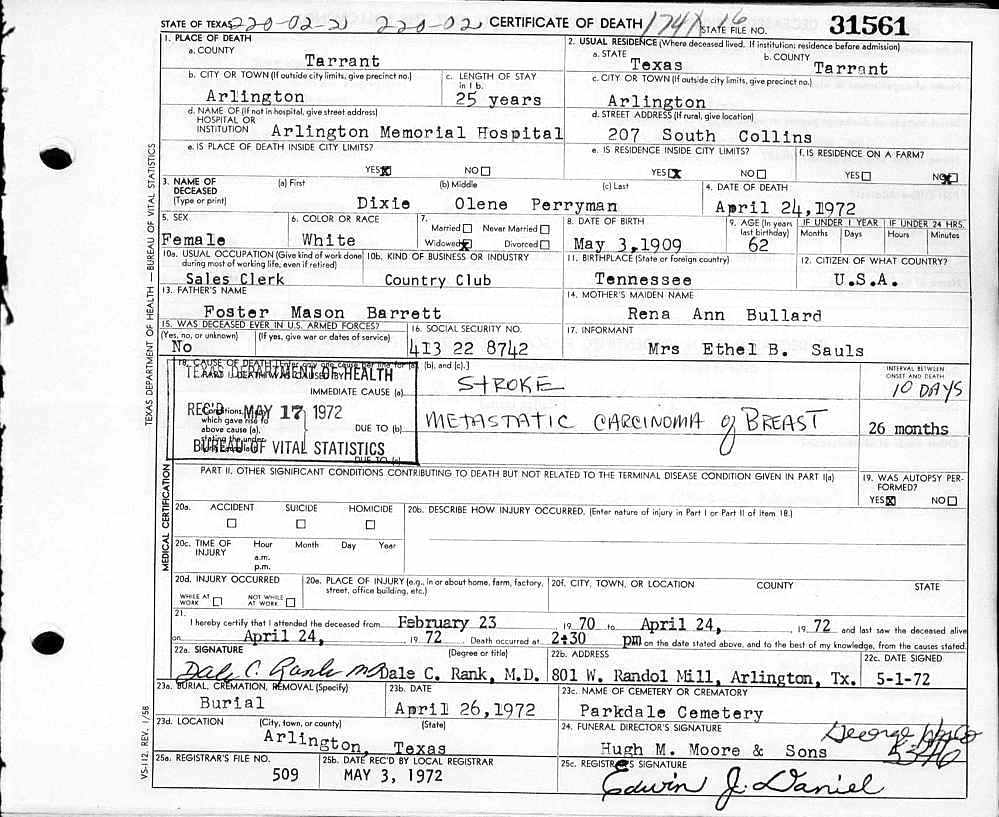 STATE OF TEXAS 220-02-21 220-02 CERTIFICATE OF DEATH 1741 16 STATE FILE NO. 31561
1. PLACE OF DEATH
a. COUNTY
Tarrant
2. USUAL RESIDENCE (Where deceased lived. If institution: residence before admission)
a. STATE
Texas
b. COUNTY
Tarrant
b. CITY OR TOWN (If outside city limits, give precinct no.)
Arlington
c. LENGTH OF STAY in 1 b.
25 years
c. CITY OR TOWN (If outside city limits, give precinct no.)
Arlington
d. NAME OF (If not in hospital, give street address)
HOSPITAL OR
INSTITUTION Arlington Memorial Hospital
d. STREET ADDRESS (If rural, give location)
207 South Collins
e. IS PLACE OF DEATH INSIDE CITY LIMITS?
YES X NO
e. IS RESIDENCE INSIDE CITY LIMITS?
YES X NO
f. IS RESIDENCE ON A FARM?
YES NO X
3. NAME OF DECEASED (Type or print)
(a) First (b) Middle (c) Last
Dixie Olene Perryman
4. DATE OF DEATH
April 24, 1972
5. SEX
Female
6. COLOR OR RACE
White
7. Married Never Married
Widowed X Divorced
8. DATE OF BIRTH
May 3, 1909
9. AGE (In years last birthday)
62
IF UNDER 1 YEAR
Months Days
IF UNDER 24 HRS.
Hours Minutes
10a. USUAL OCCUPATION (Give kind of work done during most of working life, even if retired)
Sales Clerk
10b. KIND OF BUSINESS OR INDUSTRY
Country Club
11. BIRTHPLACE (State or foreign country)
Tennessee
12. CITIZEN OF WHAT COUNTRY?
U.S.A.
13. FATHER'S NAME
Foster Mason Barrett
14. MOTHER'S MAIDEN NAME
Rena Ann Bullard
15. WAS DECEASED EVER IN U.S. ARMED FORCES?
(Yes, no, or unknown) (If yes, give war or dates of service)
No
16. SOCIAL SECURITY NO.
413 22 8742
17. INFORMANT
Mrs Ethel B. Sauls
18. CAUSE OF DEATH [Enter only one cause per line for (a), (b), and (c).]
PART I. DEATH WAS CAUSED BY:
TEXAS DEPARTMENT OF HEALTH
REC'D MAY 17 1972
BUREAU OF VITAL STATISTICS
IMMEDIATE CAUSE (a) STROKE
INTERVAL BETWEEN ONSET AND DEATH
10 DAYS
Conditions, if any, which gave rise to above cause (a), stating the under-
DUE TO (b) METASTATIC CARCINOMA of BREAST
26 months
DUE TO (c)
PART II. OTHER SIGNIFICANT CONDITIONS CONTRIBUTING TO DEATH BUT NOT RELATED TO THE TERMINAL DISEASE CONDITION GIVEN IN PART I(a)
19. WAS AUTOPSY PERFORMED?
YES X NO
20a. ACCIDENT SUICIDE HOMICIDE
20b. DESCRIBE HOW INJURY OCCURRED. (Enter nature of injury in Part I or Part II of Item 18.)
20c. TIME OF INJURY Hour Month Day Year
a.m.
p.m.
20d. INJURY OCCURRED
WHILE AT WORK NOT WHILE AT WORK
20e. PLACE OF INJURY (e.g., in or about home, farm, factory, street, office building, etc.)
20f. CITY, TOWN, OR LOCATION COUNTY STATE
21.
I hereby certify that I attended the deceased from February 23 1970 to April 24, 1972 and last saw the deceased alive
on April 24, 1972 Death occurred at 2:30 pm on the date stated above, and to the best of my knowledge, from the causes stated.
22a. SIGNATURE (Degree or title)
Dale C. Rank MD Dale C. Rank, M.D.
22b. ADDRESS
801 W. Randol Mill, Arlington, Tx.
22c. DATE SIGNED
5-1-72
23a. BURIAL, CREMATION, REMOVAL (Specify)
Burial
23b. DATE
April 26, 1972
23c. NAME OF CEMETERY OR CREMATORY
Parkdale Cemetery
23d. LOCATION (City, town, or county) (State)
Arlington, Texas
24. FUNERAL DIRECTOR'S SIGNATURE
George
Hugh M. Moore & Sons
25a. REGISTRAR'S FILE NO.
509
25b. DATE REC'D BY LOCAL REGISTRAR
MAY 3, 1972
25c. REGISTRAR'S SIGNATURE
Edwin J. Daniel
TEXAS DEPARTMENT OF HEALTH — BUREAU OF VITAL STATISTICS
MEDICAL CERTIFICATION
VS-112, REV. 1/58